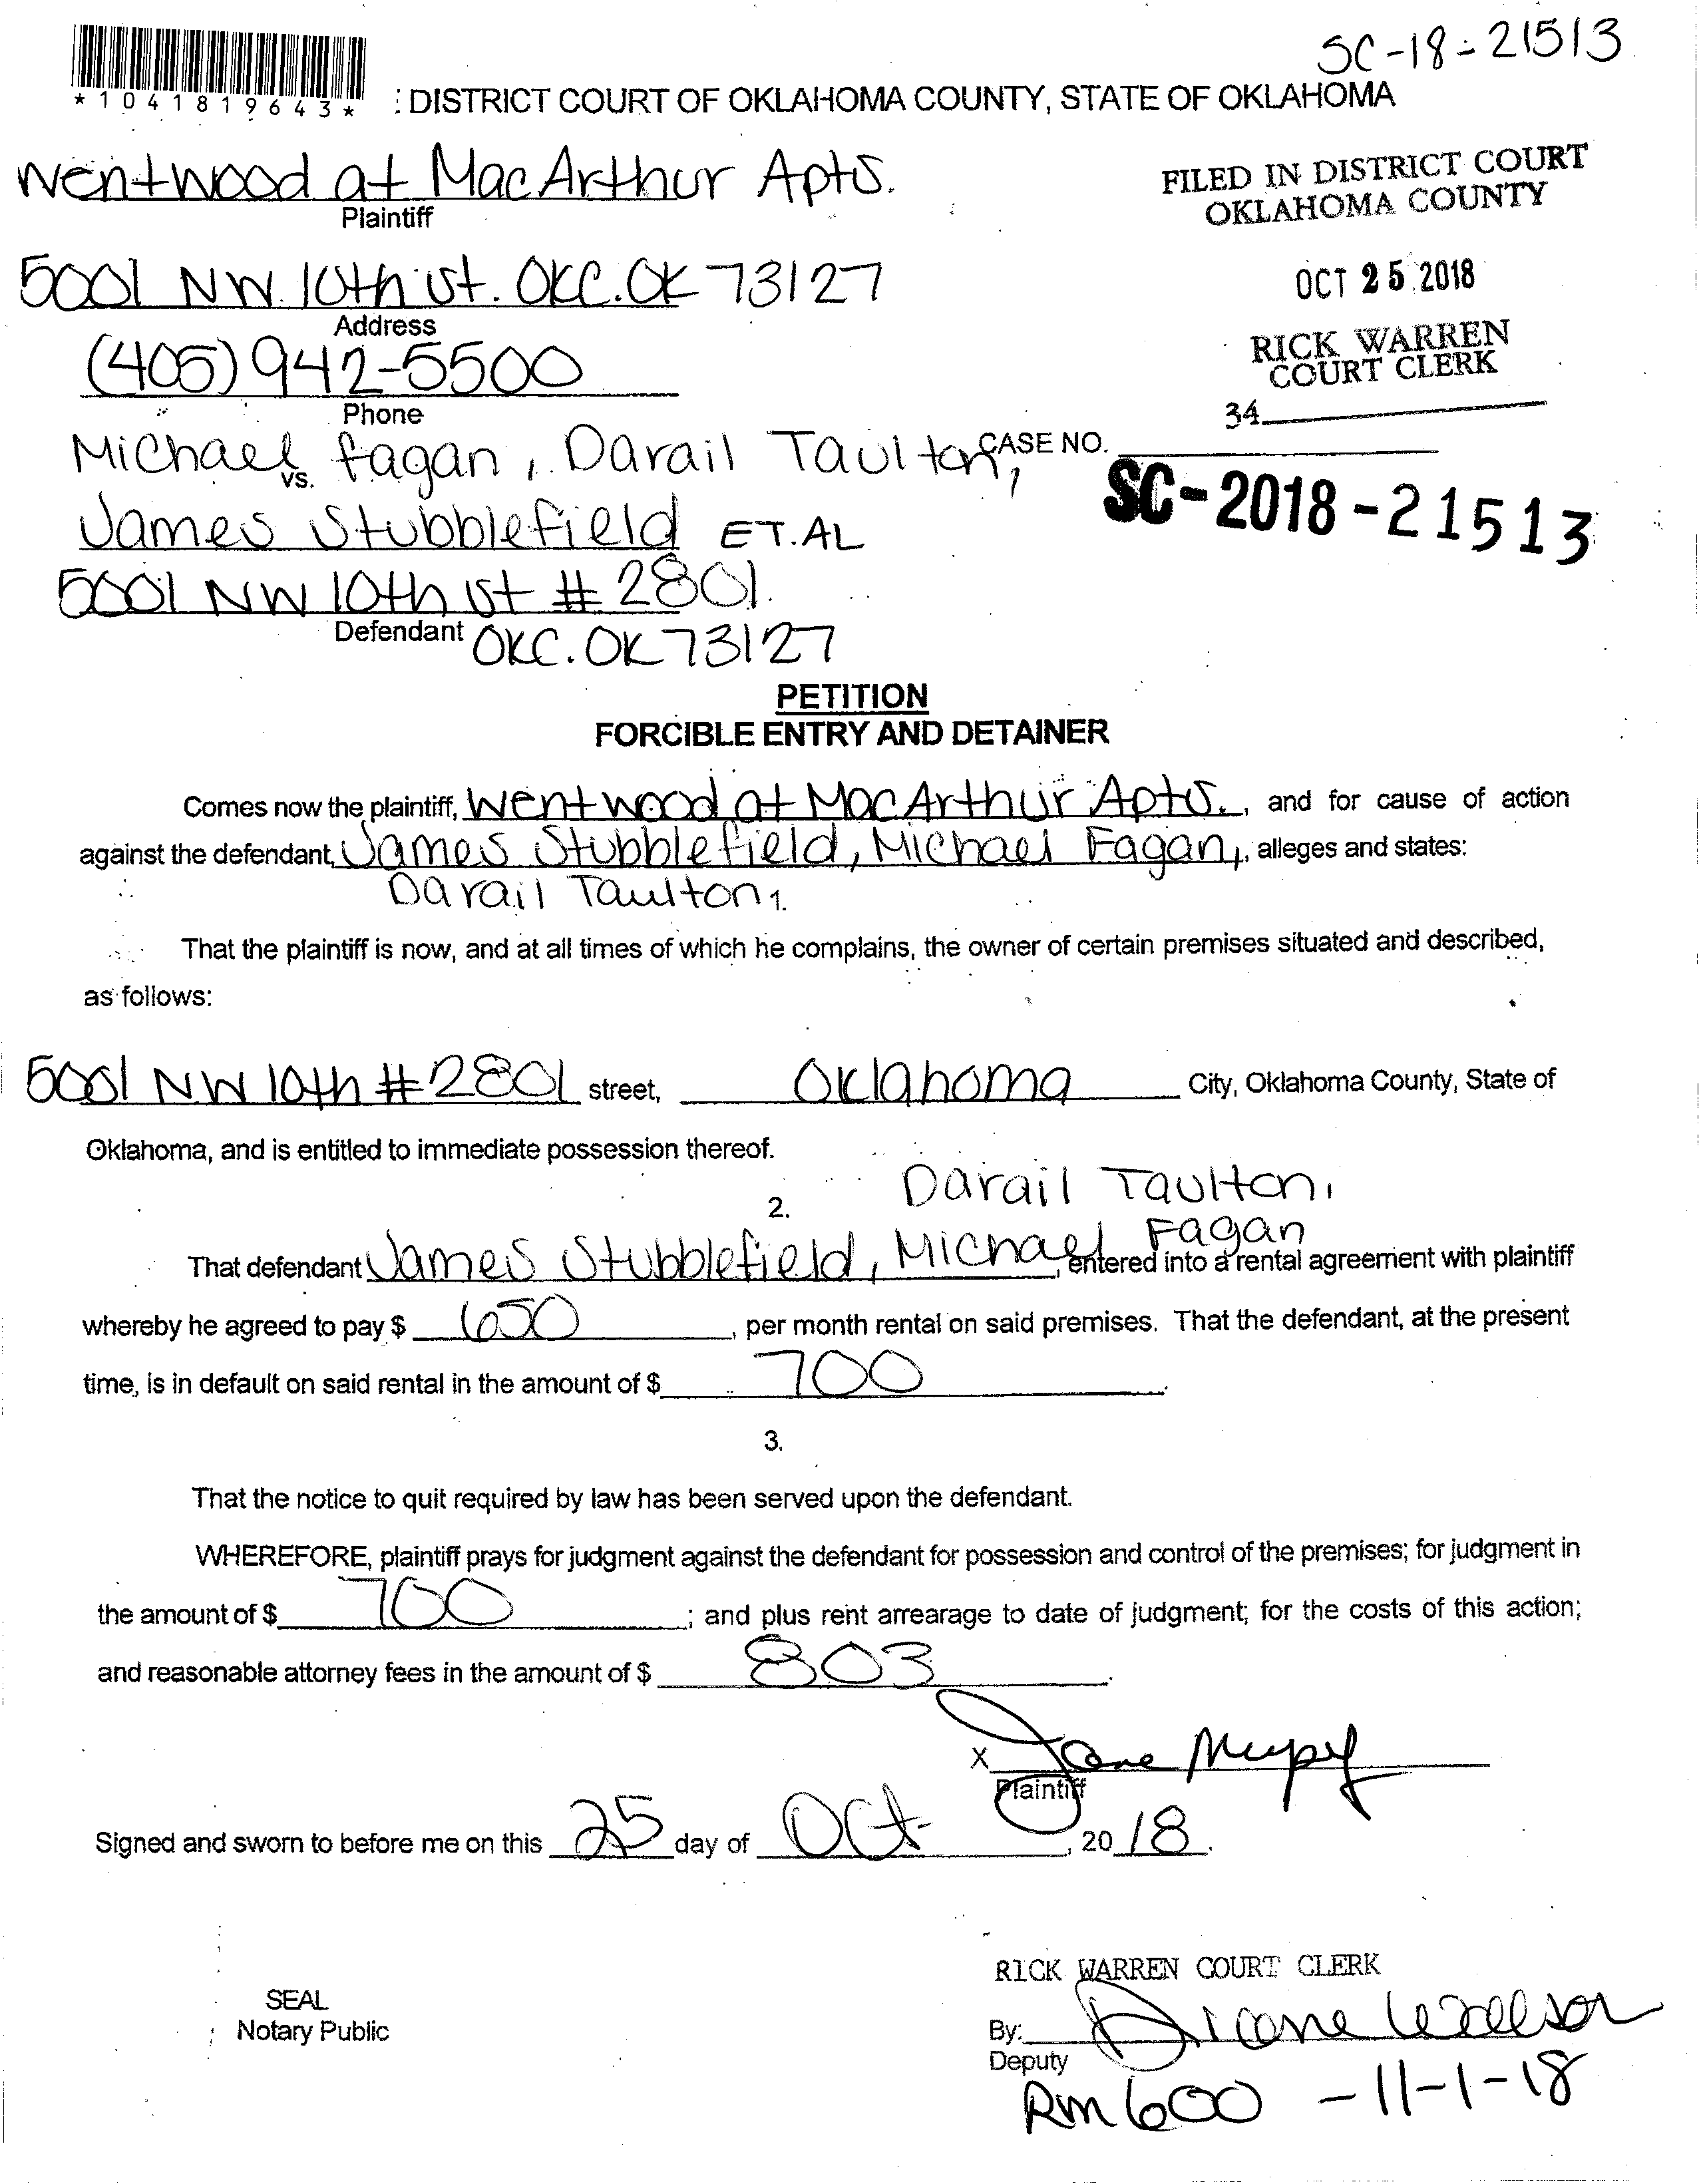 SC-18-21513
*1041819643*
: DISTRICT COURT OF OKLAHOMA COUNTY, STATE OF OKLAHOMA
Wentwood at MacArthur Apts.
Plaintiff
FILED IN DISTRICT COURT
OKLAHOMA COUNTY
5001 NW 10th st. OKC. OK 73127
Address
OCT 25 2018
(405) 942-5500
Phone
RICK WARREN
COURT CLERK
34
Michael Fagan, Darail Taulton,
vs.
CASE NO.
SC-2018-21513
James Stubblefield ET. AL
5001 NW 10th st # 2801
Defendant OKC. OK 73127
PETITION
FORCIBLE ENTRY AND DETAINER
Comes now the plaintiff, Wentwood at MacArthur Apts., and for cause of action
against the defendant, James Stubblefield, Michael Fagan, alleges and states:
Darail Taulton
1.
That the plaintiff is now, and at all times of which he complains, the owner of certain premises situated and described,
as follows:
5001 NW 10th # 2801 street, Oklahoma City, Oklahoma County, State of
Oklahoma, and is entitled to immediate possession thereof.
2.
Darail Taulton,
That defendant James Stubblefield, Michael Fagan, entered into a rental agreement with plaintiff
whereby he agreed to pay $ 650, per month rental on said premises. That the defendant, at the present
time, is in default on said rental in the amount of $ 700.
3.
That the notice to quit required by law has been served upon the defendant.
WHEREFORE, plaintiff prays for judgment against the defendant for possession and control of the premises; for judgment in
the amount of $ 700; and plus rent arrearage to date of judgment; for the costs of this action;
and reasonable attorney fees in the amount of $ 803.
X Jane
Plaintiff
Signed and sworn to before me on this 25 day of Oct, 2018.
RICK WARREN COURT CLERK
SEAL
Notary Public
By: Diane
Deputy
Rm 600 - 11-1-18